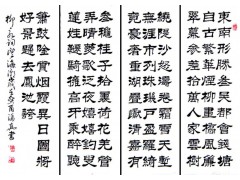 東南形勝三吳都會錢塘
自古繁華煙柳畫橋風簾
翠幕參差十萬人家雲樹
繞堤沙怒濤卷霜雪天塹
無涯市列珠璣戶盈羅綺
競豪奢重湖疊巘清嘉有
三秋桂子十里荷花羌管
弄晴菱歌泛夜嬉嬉釣叟
蓮娃千騎擁高牙乘醉聽
簫鼓吟賞煙霞異日圖將
好景歸去鳳池誇
柳永詞望海潮